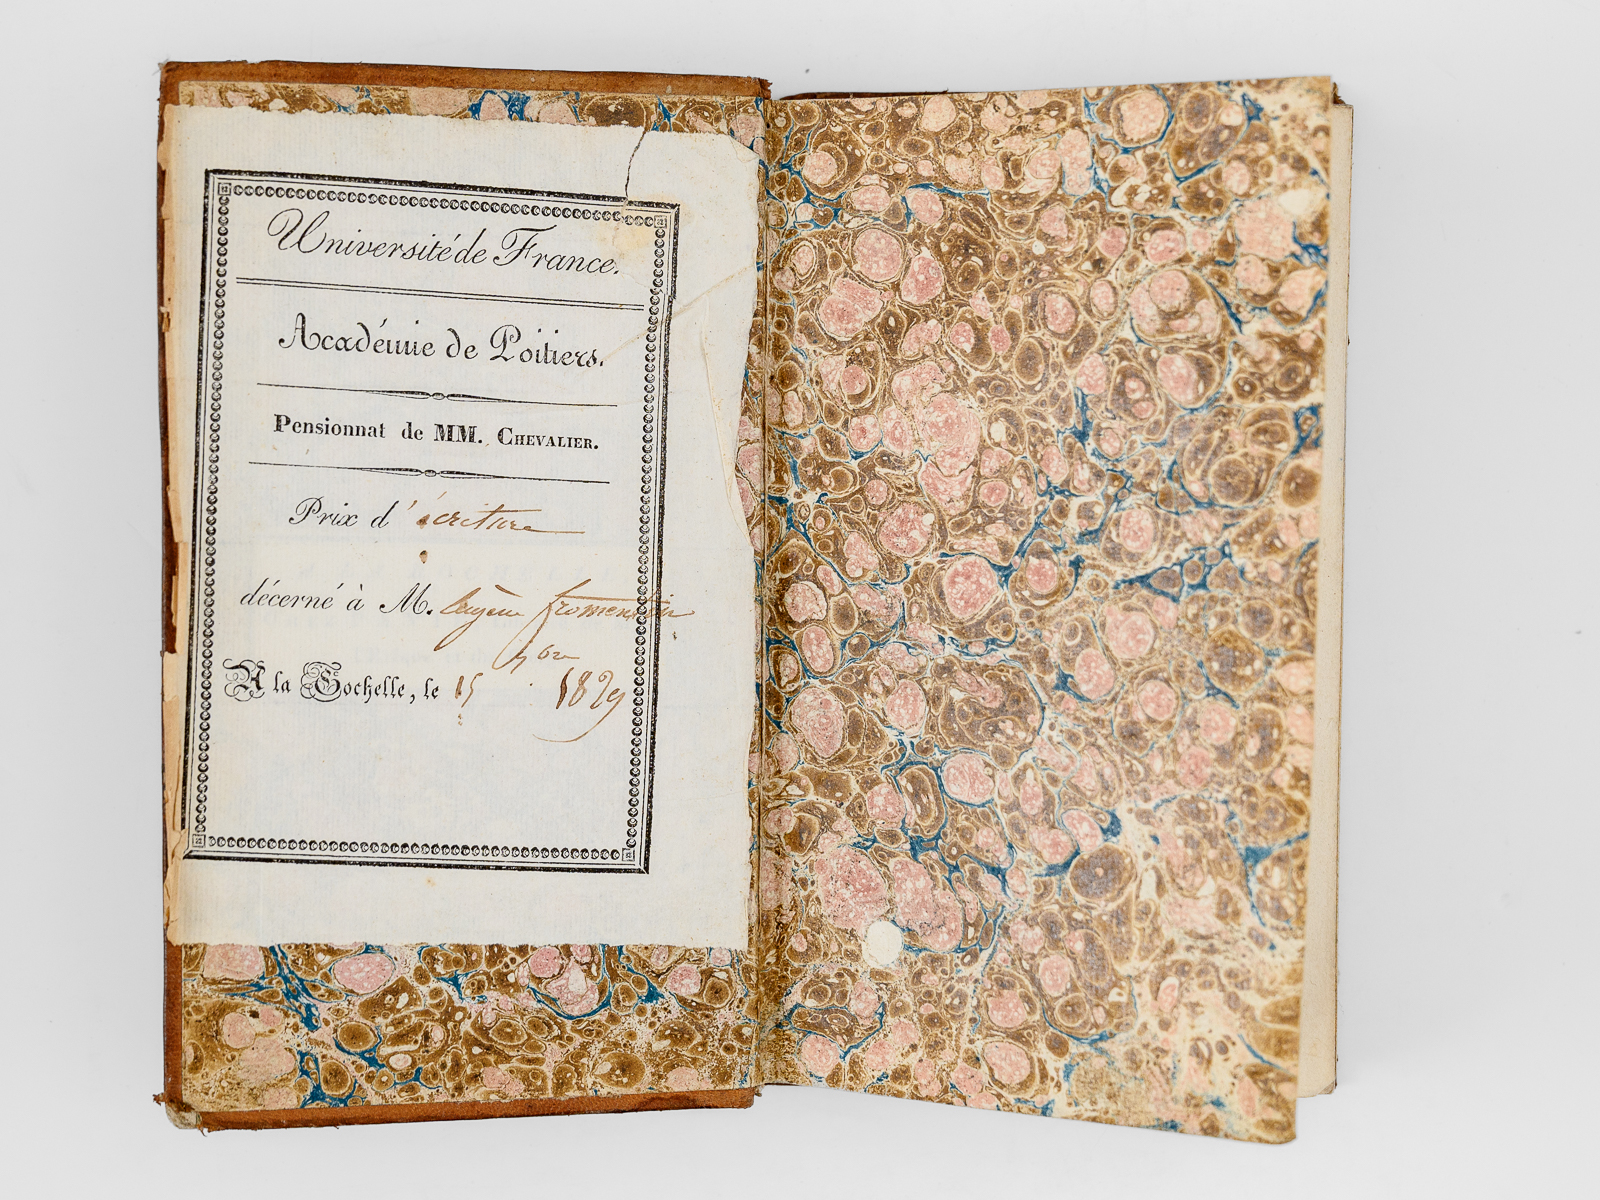 Université de France.
Académie de Poitiers.
Pensionnat de MM. CHEVALIER.
Prix d'écriture
décerné à M. Eugène fromentin
A la Rochelle, le 15 7bre 1829